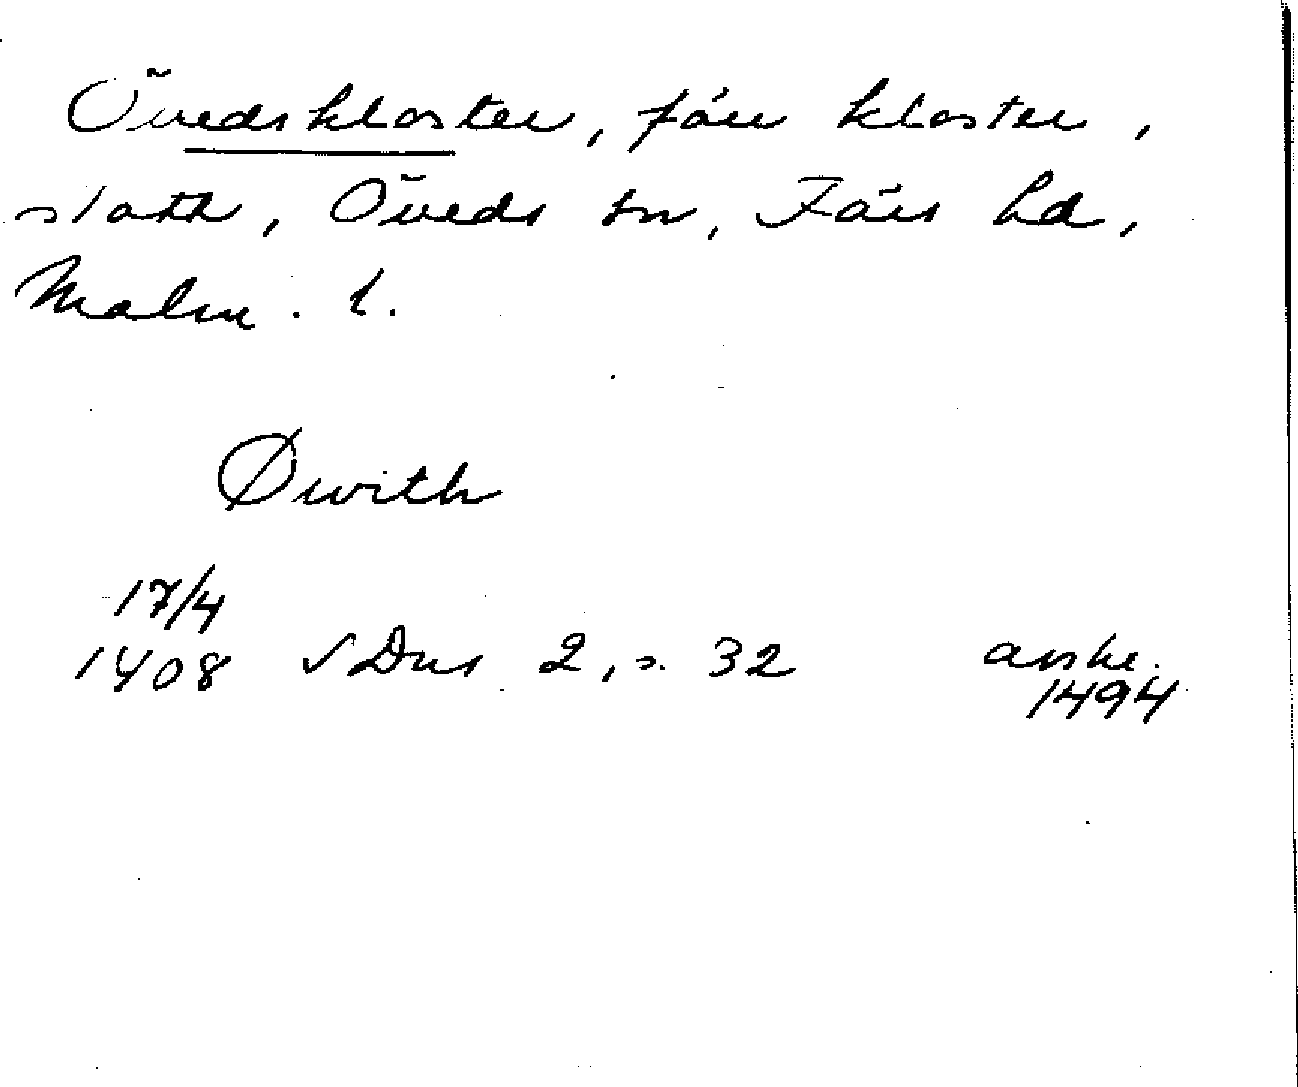 Övedskloster, förr kloster,
slott, Öveds sn, Färs hd,
Malm. l.
Øwith
17/4
1408 SDns 2, s. 32 avskr.
1494